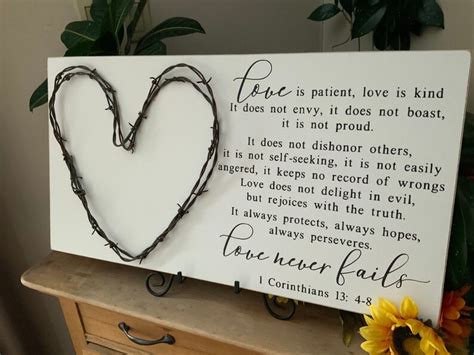 love is patient, love is kind
It does not envy, it does not boast,
it is not proud.
It does not dishonor others,
it is not self-seeking, it is not easily
angered, it keeps no record of wrongs
Love does not delight in evil,
but rejoices with the truth.
It always protects, always hopes,
always perseveres.
love never fails
1 Corinthians 13: 4-8